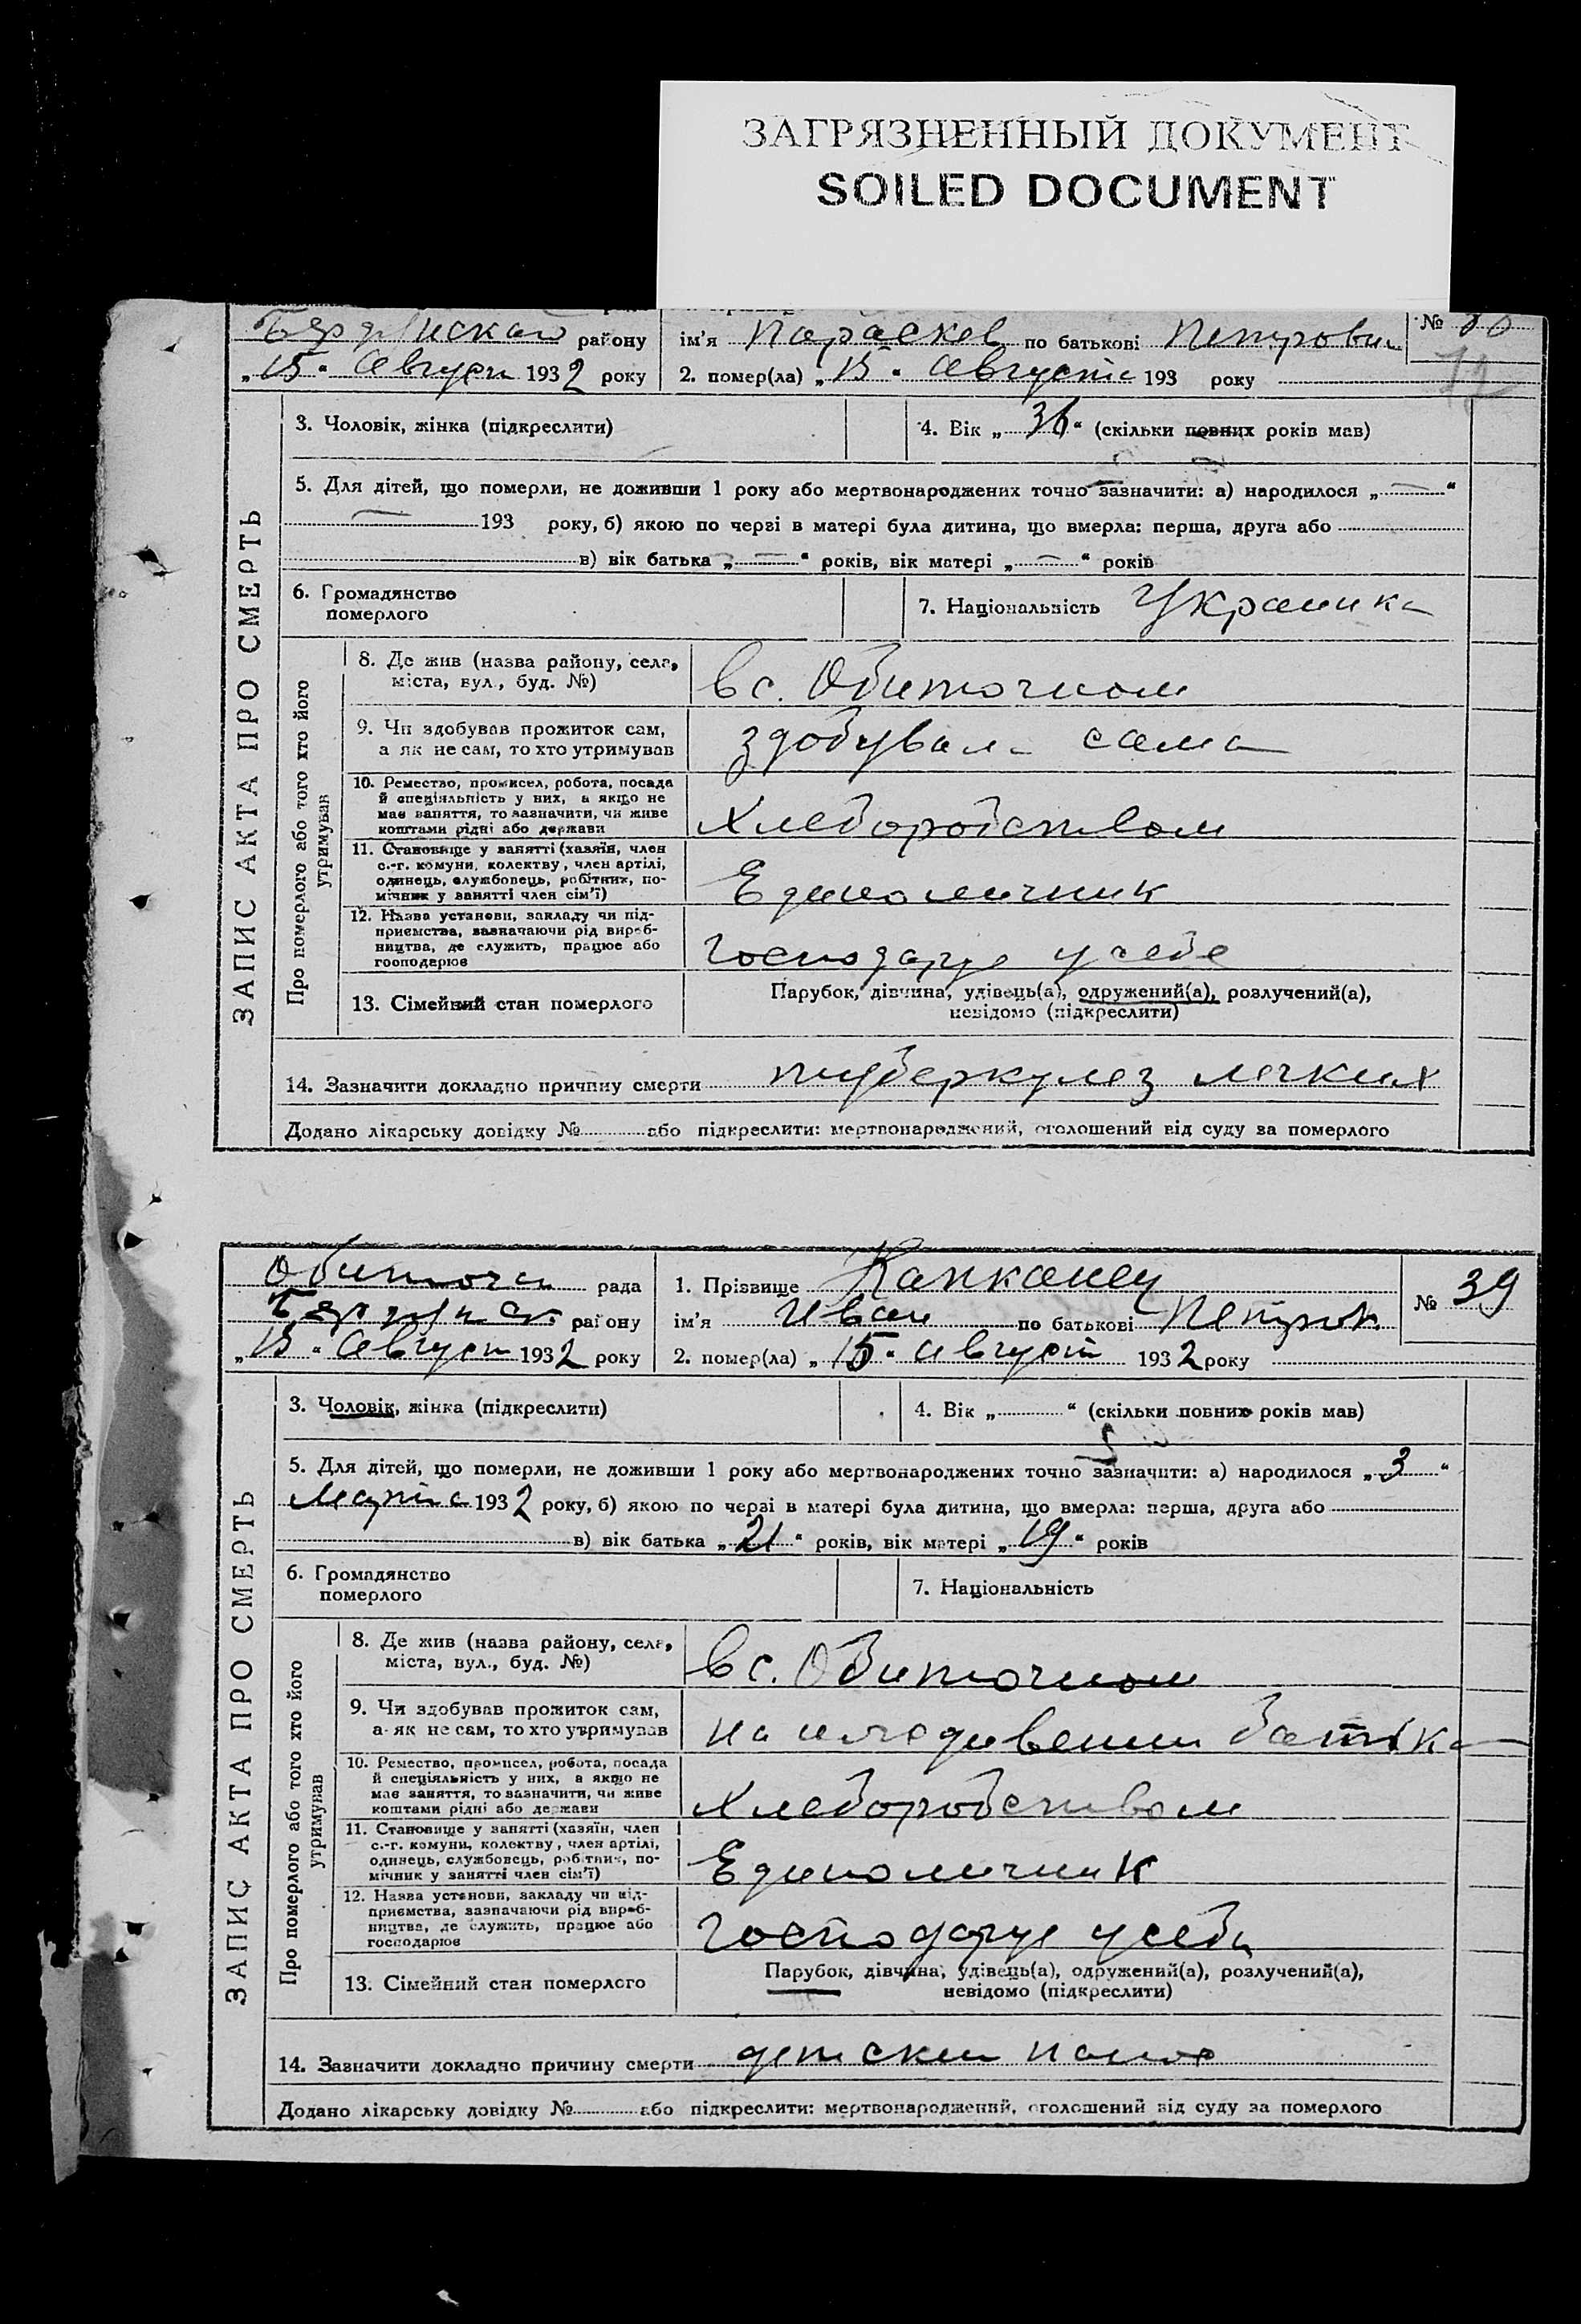 ЗАГРЯЗНЕННЫЙ ДОКУМЕНТ
SOILED DOCUMENT
району ім'я Параскев по батькові Петровн №
„15“ Август 1932 року 2. помер(ла) „15“ Августа 193 року
ЗАПИС АКТА ПРО СМЕРТЬ
3. Чоловік, жінка (підкреслити) 4. Вік „36“ (скільки повних років мав)
5. Для дітей, що померли, не доживши 1 року або мертвонароджених точно зазначити: а) народилося „—“
— 193 року, б) якою по черзі в матері була дитина, що вмерла: перша, друга або
в) вік батька „—“ років, вік матері „—“ років
6. Громадянство
померлого
7. Національність Украинка
Про померлого або того хто його
утримував
8. Де жив (назва району, села,
міста, вул., буд. №)
в с. Обиточном
9. Чи здобував прожиток сам,
а як не сам, то хто утримував
здобувала сама
10. Ремество, промисел, робота, посада
й спеціяльність у них, а якщо не
має заняття, то зазначити, чи живе
коштами рідні або держави
Хлеборобством
11. Становище у занятті (хазяїн, член
с.-г. комуни, колективу, член артілі,
одинець, службовець, робітник, по-
мічник у занятті член сім'ї)
Единоличник
12. Назва установи, закладу чи під-
приємства, зазначаючи рід вироб-
ництва, де служить, працює або
господарює
Господарує у себе
13. Сімейний стан померлого
Парубок, дівчина, удівець(а), одружений(а), розлучений(а),
невідомо (підкреслити)
14. Зазначити докладно причину смерти туберкулез легких
Додано лікарську довідку № або підкреслити: мертвонароджений, оголошений від суду за померлого
Обиточн рада 1. Прізвище Капканец № 39
району ім'я Иван по батькові Петров
„15“ Август 1932 року 2. помер(ла) „15“ Август 1932 року
ЗАПИС АКТА ПРО СМЕРТЬ
3. Чоловік, жінка (підкреслити) 4. Вік „ “ (скільки повних років мав)
5. Для дітей, що померли, не доживши 1 року або мертвонароджених точно зазначити: а) народилося „3“
Марта 1932 року, б) якою по черзі в матері була дитина, що вмерла: перша, друга або
в) вік батька „21“ років, вік матері „19“ років
6. Громадянство
померлого
7. Національність
Про померлого або того хто його
утримував
8. Де жив (назва району, села,
міста, вул., буд. №)
в с. Обиточном
9. Чи здобував прожиток сам,
а як не сам, то хто утримував
на батька
10. Ремество, промисел, робота, посада
й спеціяльність у них, а якщо не
має заняття, то зазначити, чи живе
коштами рідні або держави
Хлеборобством
11. Становище у занятті (хазяїн, член
с.-г. комуни, колективу, член артілі,
одинець, службовець, робітник, по-
мічник у занятті член сім'ї)
Единоличник
12. Назва установи, закладу чи під-
приємства, зазначаючи рід вироб-
ництва, де служить, працює або
господарює
Господарує у себе
13. Сімейний стан померлого
Парубок, дівчина, удівець(а), одружений(а), розлучений(а),
невідомо (підкреслити)
14. Зазначити докладно причину смерти детский понос
Додано лікарську довідку № або підкреслити: мертвонароджений, оголошений від суду за померлого